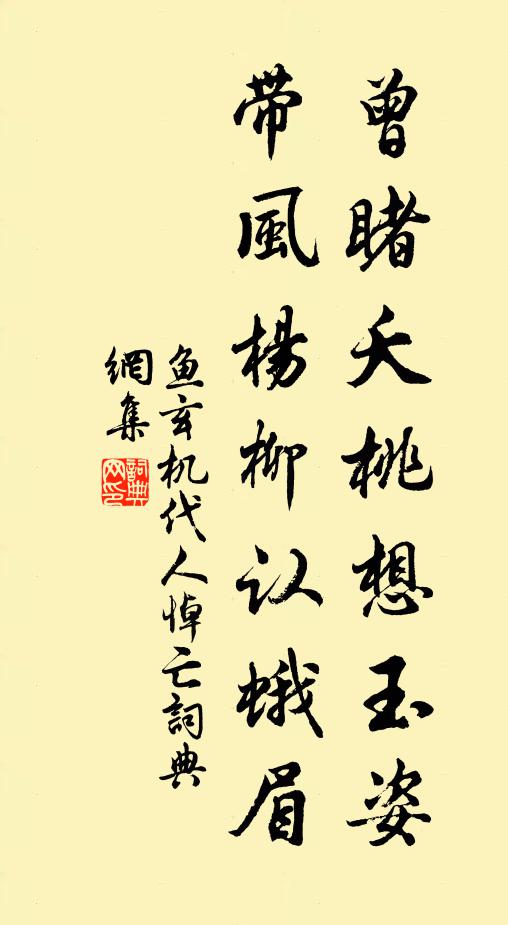 曾睹夭桃想玉姿
带風楊柳认蛾眉
鱼玄机代人悼亡詞典
網集
詞典網印